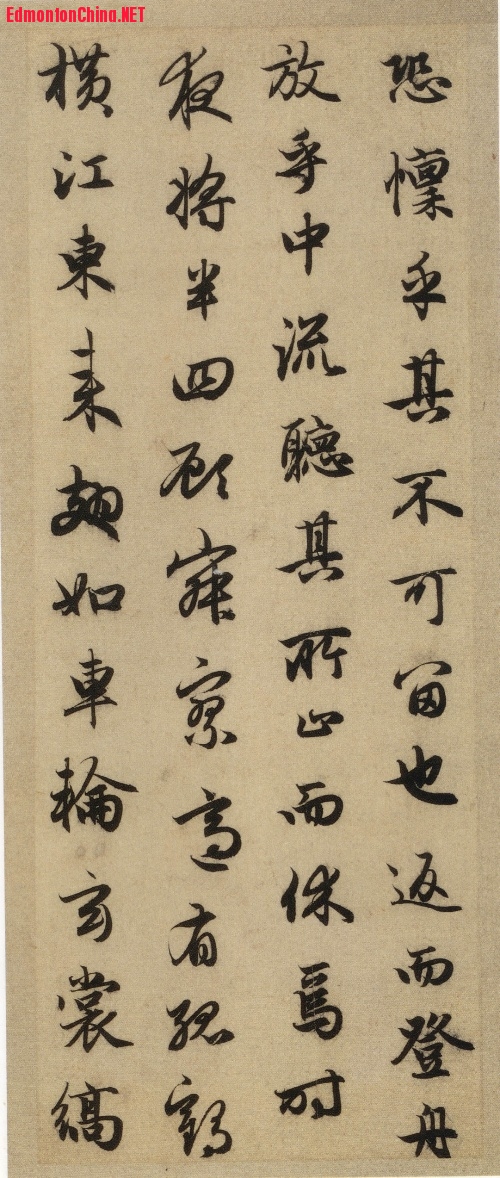 EdmontonChina.NET
恐懍乎其不可留也返而登舟
放乎中流聽其所止而休焉時
夜將半四顧寂寥適有孤鶴
橫江東來翅如車輪玄裳縞